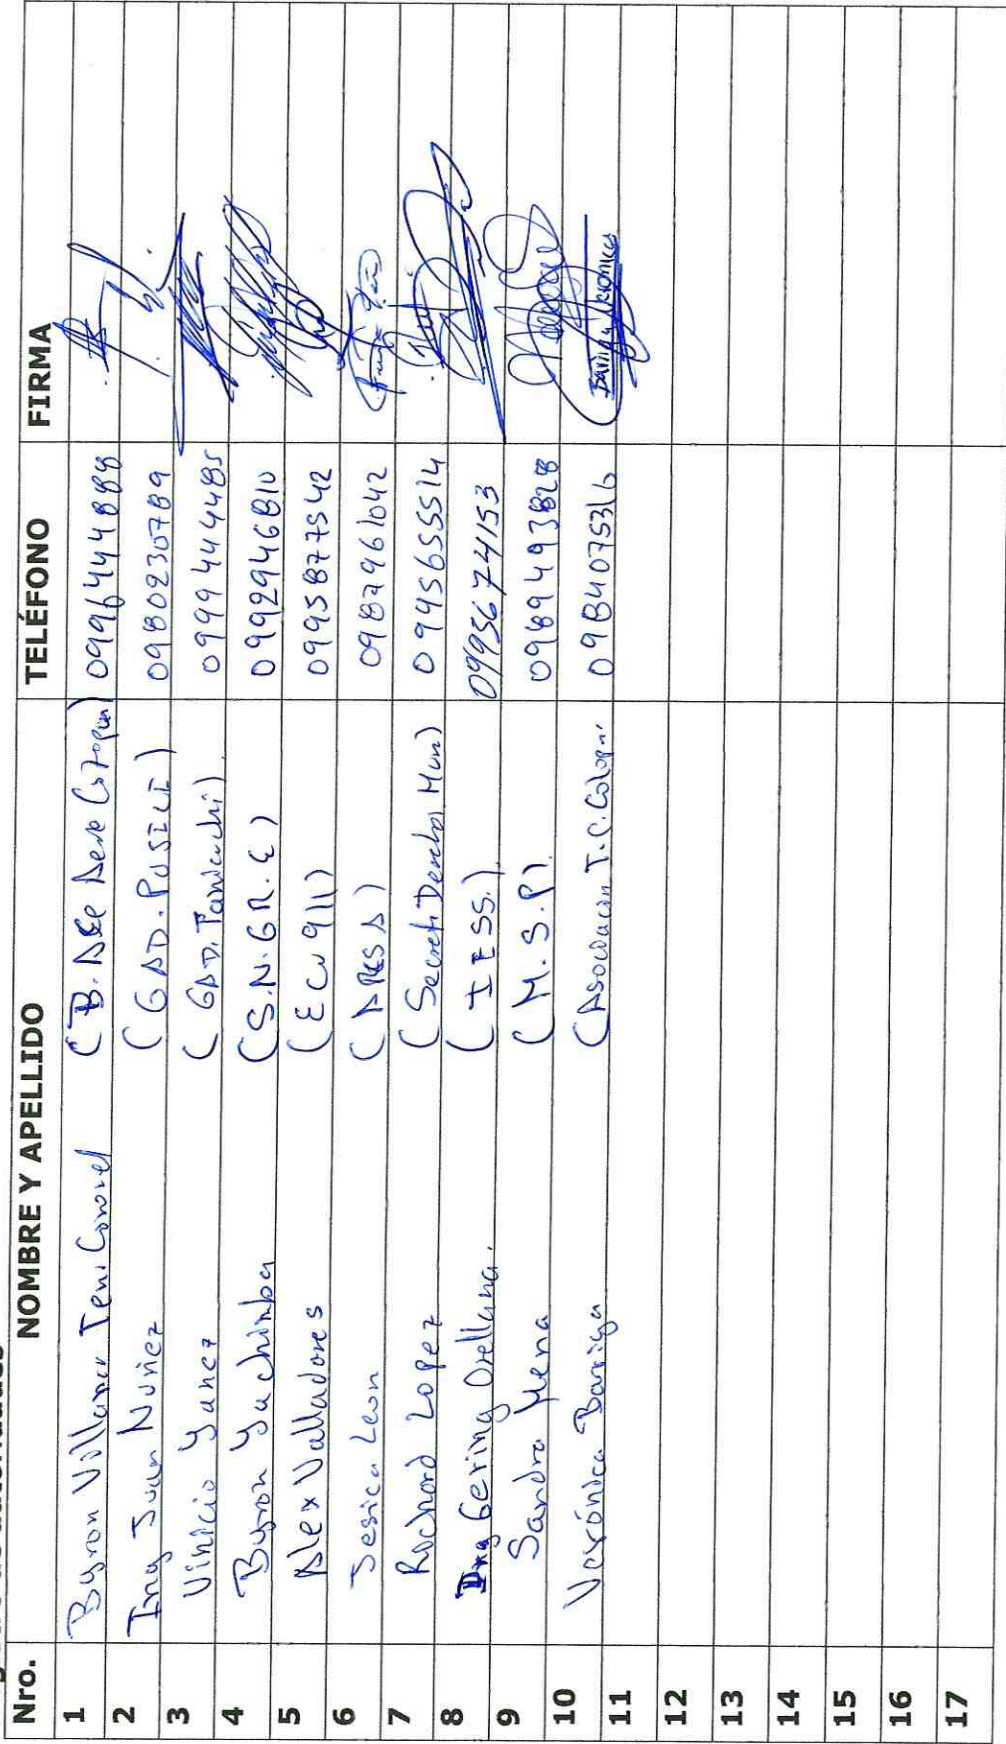 Nro. NOMBRE Y APELLIDO TELÉFONO FIRMA
1 Byron Villamar Ten. Coronel (B. Ase 0996444888
2 Ing Juan Nuñez (GAD. PUJILI) 0980230789
3 Vinicio Yanez (GAD. Tanicuchi) 0999444485
4 Byron Yachimba (S.N.GR.E) 0992946810
5 Alex Valladores (ECU 911) 0995877542
6 Jesica Leon (ARCSA) 0987961042
7 Richard Lopez (Secret. Derechos Hum) 0945655514
8 Gering Orellana. (IESS.) 0995674153
9 Sandra Mena (M.S.P). 0989493828
10 Verónica Barriga (Asociacion T.C. 0984075316 Barriga Veronica
11
12
13
14
15
16
17